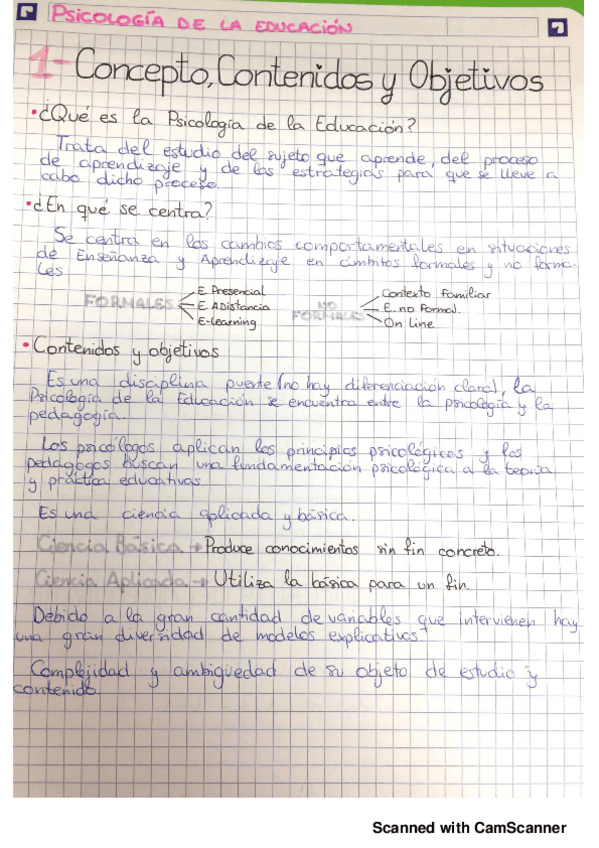 PSICOLOGÍA DE LA EDUCACIÓN
1- Concepto, Contenidos y Objetivos
• ¿Qué es la Psicología de la Educación?
Trata del estudio del sujeto que aprende, del proceso
de aprendizaje y de las estrategias para que se lleve a
cabo dicho proceso.
• ¿En qué se centra?
Se centra en los cambios comportamentales en situaciones
de Enseñanza y Aprendizaje en ámbitos formales y no forma-
les
FORMALES
E Presencial
E ADistancia
E-Learning
NO FORMALES
Contexto Familiar
E. no Formal.
On Line.
• Contenidos y objetivos
Es una disciplina puente (no hay diferenciación clara), la
Psicología de la Educación se encuentra entre la psicología y la
pedagogía.
Los psicólogos aplican los principios psicológicos y los
pedagogos buscan una fundamentación psicológica a la teoría
y práctica educativas
Es una ciencia aplicada y básica.
Ciencia Básica → Produce conocimientos sin fin concreto.
Ciencia Aplicada → Utiliza la básica para un fin.
Debido a la gran cantidad de variables que intervienen hay
una gran diversidad de modelos explicativos
Complejidad y ambigüedad de su objeto de estudio y
contenido
Scanned with CamScanner